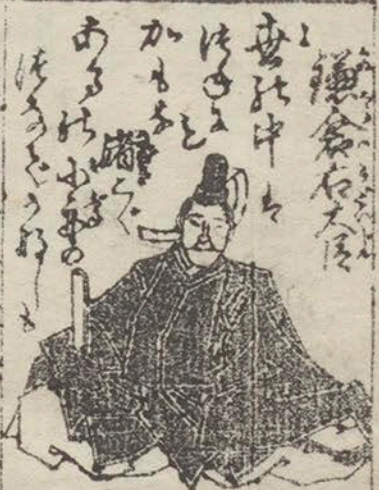 鎌倉右大臣
世の中は
つねにも
かもな
渚こぐ
あまの小舟の
つなでかなしも